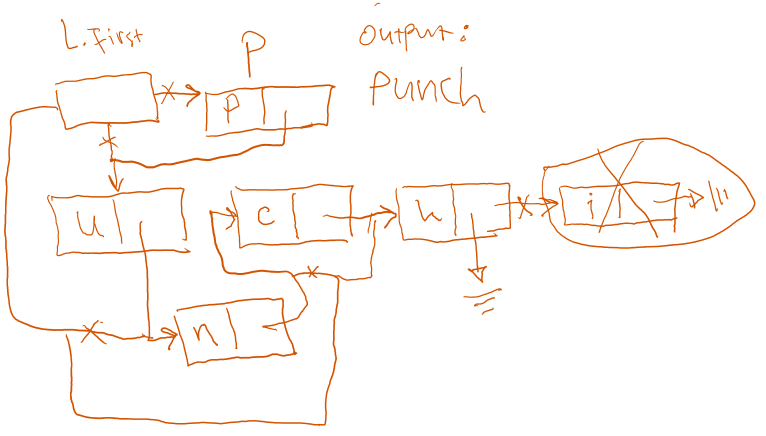 L.first
P
output:
punch
P
u
c
h
i
n